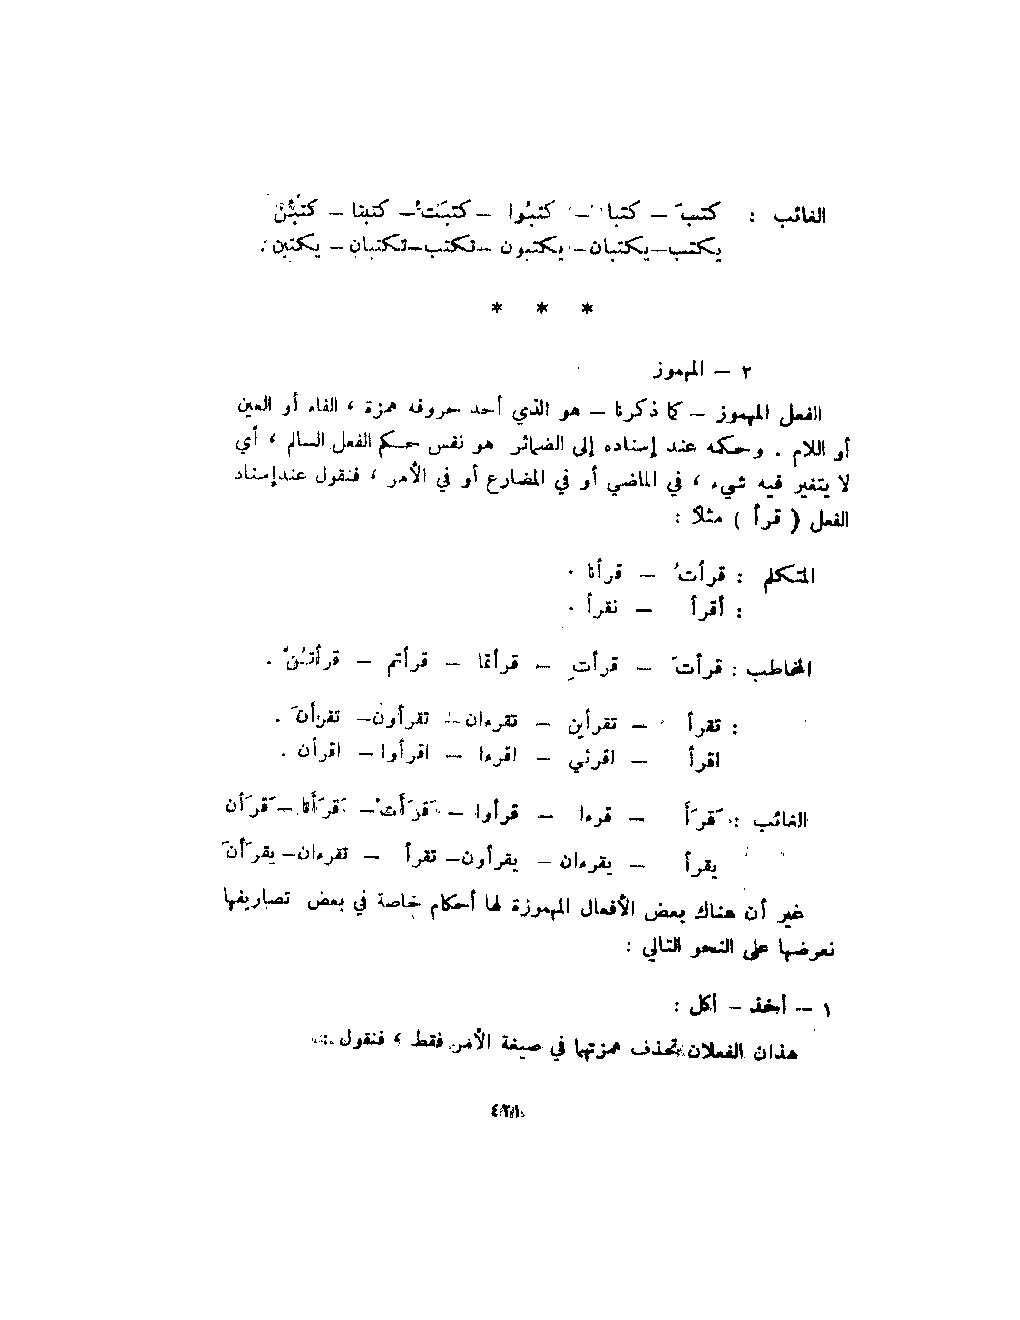 الغائب : كتبَ – كتبا – كتبُوا – كتبَتْ – كتبتا – كتبْنَ
يكتب – يكتبان – يكتبون – تكتب – تكتبان – يكتبن .
* * *
٢ – المهموز
الفعل المهموز – كما ذكرنا – هو الذي أحد حروفه همزة ، الفاء أو العين
أو اللام . وحكمه عند إسناده إلى الضمائر هو نفس حكم الفعل السالم ، أي
لا يتغير فيه شيء ، في الماضي أو في المضارع أو في الأمر ، فنقول عند إسناد
الفعل ( قرأ ) مثلاً :
المتكلم : قرأتُ – قرأنا .
: أقرأ – نقرأ .
المخاطب : قرأتَ – قرأتِ – قرأتما – قرأتم – قرأتُنَّ .
: تقرأ – تقرأين – تقرءان – تقرأون – تقرأنَ .
اقرأ – اقرئي – اقرءا – اقرأوا – اقرأن .
الغائب : قَرَأَ – قرءا – قرأوا – قَرَأَتْ – قَرَأَتا – قَرَأن
يقرأ – يقرءان – يقرأون – تقرأ – تقرءان – يقرَأنَ
غير أن هناك بعض الأفعال المهموزة لها أحكام خاصة في بعض تصاريفها
نعرضها على النحو التالي :
١ – أخذ – أكل :
هذان الفعلان تحذف همزتها في صيغة الأمر فقط ، فنقول :